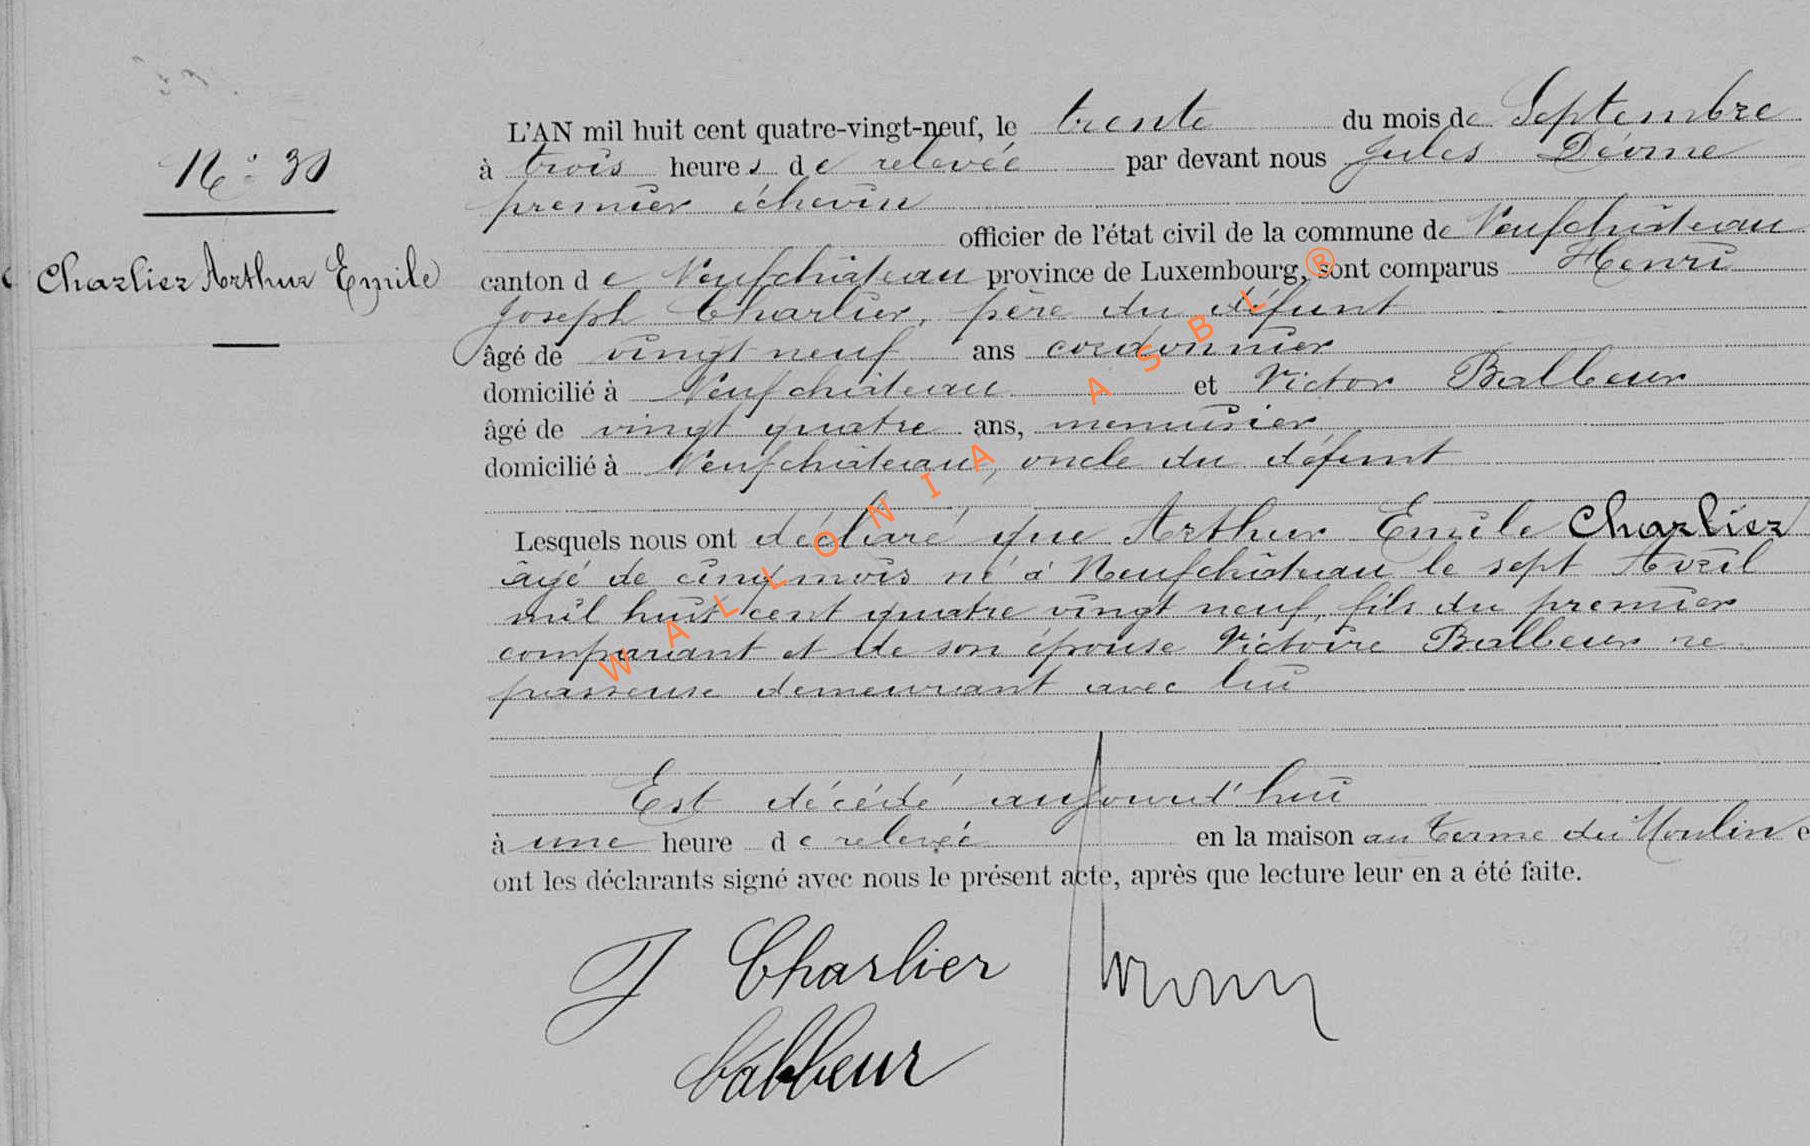 N° 30
Charlier Arthur Emile
L'AN mil huit cent quatre-vingt-neuf, le trente du mois de Septembre
à trois heures de relevée par devant nous Jules
premier échevin
officier de l'état civil de la commune de Neufchâteau
canton de Neufchâteau province de Luxembourg, sont comparus Henri
Joseph Charlier, père du défunt
âgé de vingt neuf ans cordonnier
domicilié à Neufchâteau et Victor Balbeur
âgé de vingt quatre ans, menuisier
domicilié à Neufchâteau, oncle du défunt
Lesquels nous ont déclaré que Arthur Emile Charlier
âgé de cinq mois né à Neufchâteau le sept Avril
mil huit cent quatre vingt neuf, fils du premier
comparant et de son épouse Victoire Balbeur re
passeuse demeurant avec lui
Est décédé aujourd'hui
à une heure de relevée en la maison au terme du Moulin e
ont les déclarants signé avec nous le présent acte, après que lecture leur en a été faite.
J Charlier
Balbeur
WALLONIA ASBL ®